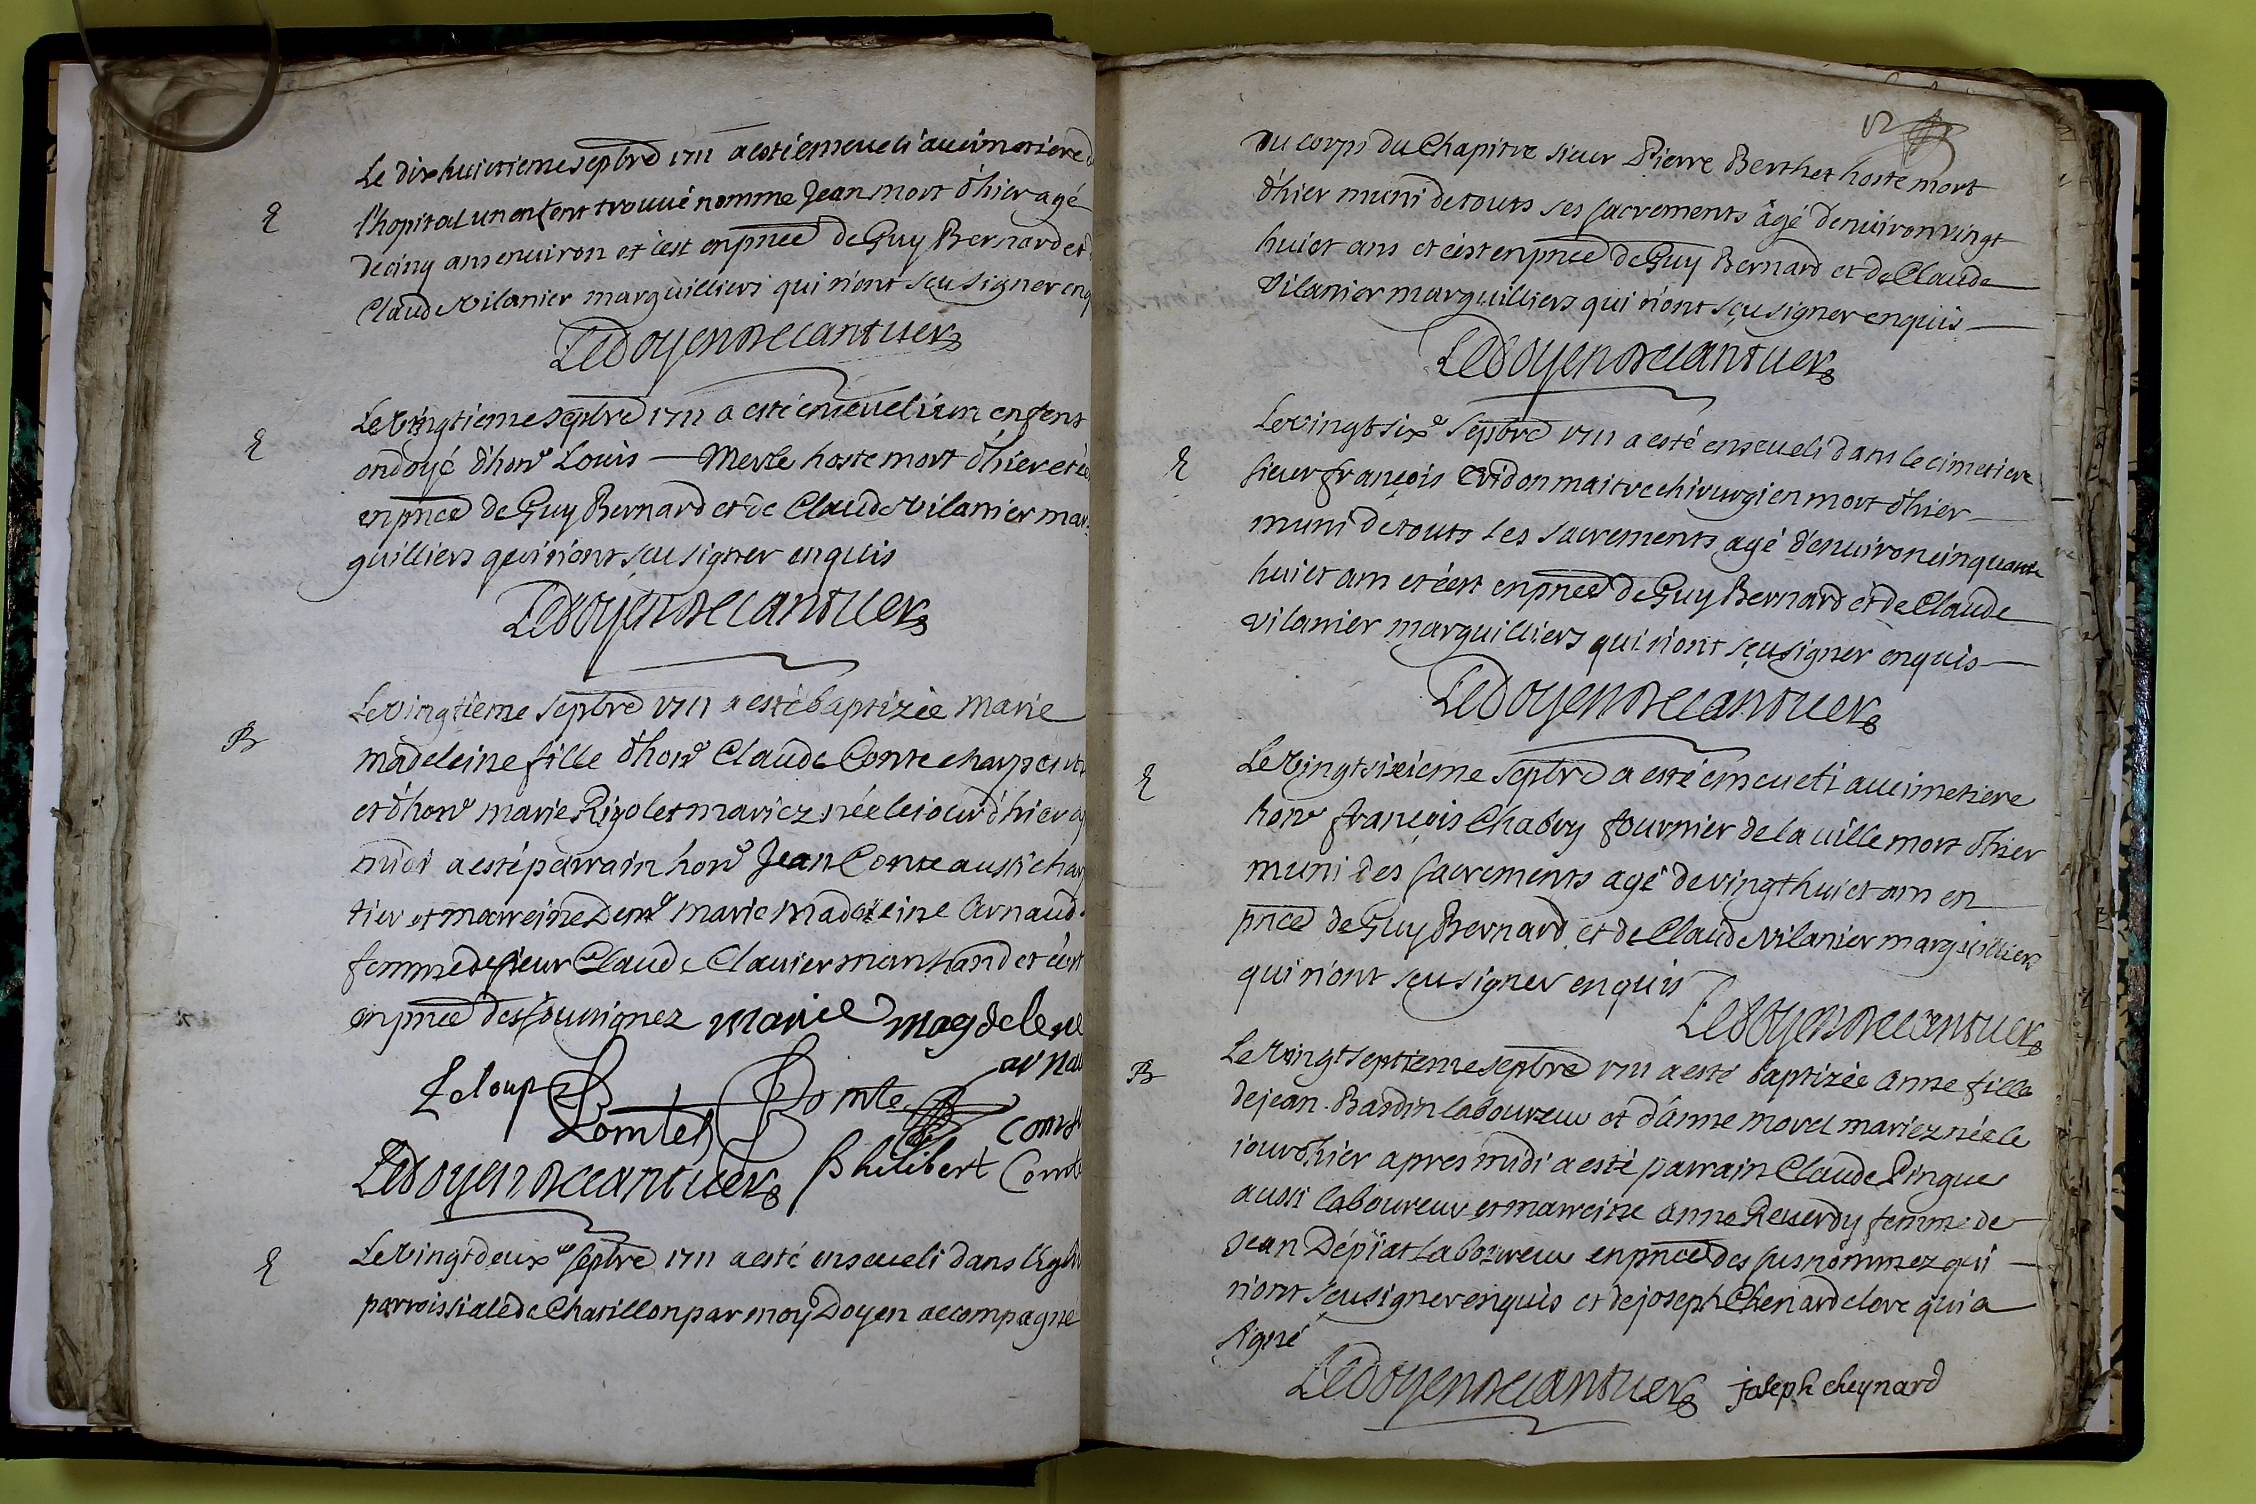 Le dix huictieme septbre 1711 a esté enseveli au cimetiere
E
l'hopital un enfent trouvé nommé Jean mort d'hier agé
de cinq ans environ et c'est enpnce de Guy Bernard et
Claude Vilanier marguilliers qui n'ont sçu signer
Ledoyen
Le Vingtieme septbre 1711 a esté enseveli un enfens
E
ondoyé d'hone Louis — Merle hoste mort d'hier et
enpnce de Guy Bernard et de Claude Vilanier mar
guilliers qui n'ont sçu signer enquis
Ledoyen
Le vingtieme septbre 1711 a esté baptizée Marie
B
madeleine fille d'hone Claude Conte
et d'hone marie Rigolet mariez née le jour d'hier
midi a esté parrain hone Jean Conte aussi
tier et marreine Marie Madeleine Arnaud
femme de sieur Claude Clavier marchand et c'est
enpnce des sousignez marie magdelene
arnau
Leloup Comte Comte
Ledoyen Philibert Comte
Le Vingtdeuxe septbre 1711 a esté enseveli dans
E
parroissiale de Chatillon par moy Doyen accompagné
du corps du Chapitre sieur Pierre Berthet hoste mort
d'hier muni de touts ses sacrements âgé d'environ vingt
huict ans et c'est enpnce de Guy Bernard et de Claude
Vilanier marguilliers qui n'ont sçu signer enquis —
Ledoyen
Le Vingt sixe septbre 1711 a esté enseveli dans le cimetiere
E
sieur françois maitre chirurgien mort d'hier —
muni de touts les sacrements agé d'environ cinquante
huict ans et c'est enpnce de Guy Bernard et de Claude
vilanier marguilliers qui n'ont sçu signer enquis —
Ledoyen
Le Vingtsixieme septbre a esté enseveli au cimetiere
E
hone françois Chabry fournier de la ville mort d'hier
muni des sacrements agé de vingthuict ans en
pnce de Guy Bernard et de Claude Vilanier marguillier
qui n'ont sçu signer enquis
Ledoyen
Le Vingtseptieme septbre 1711 a esté baptizée Anne fille
B
de jean Bardin laboureur et d'Anne morel mariez née le
jour d'hier apres midi a esté parrain Claude Pingue
aussi laboureur et marreine Anne Reverdy femme de
Jean Dépiat laboureur enpnce des susnommez qui —
n'ont sçu signer enquis et de joseph Chenard clerc qui a
signé
Ledoyen joseph cheynard